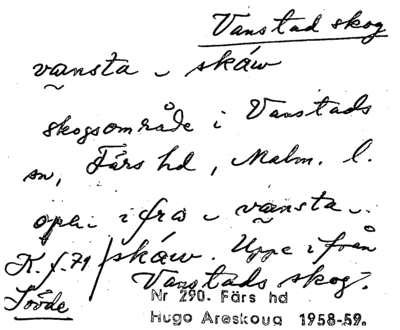 Vanstad skog
vansta ᴗ skáw
skogsområde i Vanstads
sn, Färs hd, Malm. l.
i frå ᴗ vansta ᴗ
skáw. Uppe ifrån
Vanstads skog.
K. f. 71
Sövde
Nr 290. Färs hd
Hugo Areskoug 1958-59.